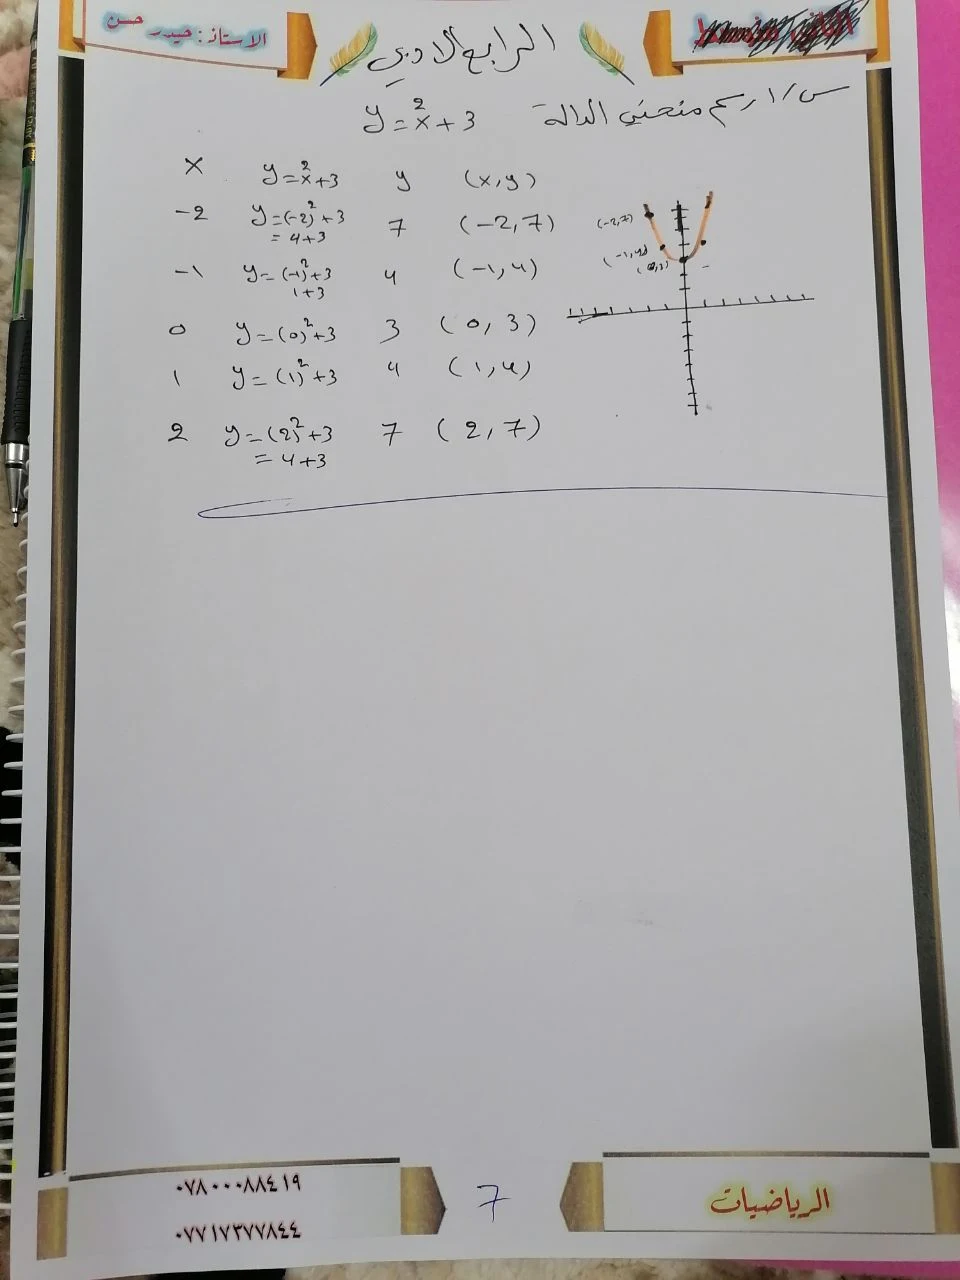 الاستاذ: حيدر حسن
الرابع الادبي
س/١ رسم منحني الدالة y = x² + 3
x y = x² + 3 y (x, y)
-2 y = (-2)² + 3 7 (-2, 7)
= 4 + 3
-1 y = (-1)² + 3 4 (-1, 4)
1 + 3
0 y = (0)² + 3 3 (0, 3)
1 y = (1)² + 3 4 (1, 4)
2 y = (2)² + 3 7 (2, 7)
= 4 + 3
(-2, 7)
(-1, 4)
(0, 3)
٠٧٨٠٠٠٨٨٤١٩
٠٧٧١٧٣٧٧٨٤٤
7
الرياضيات